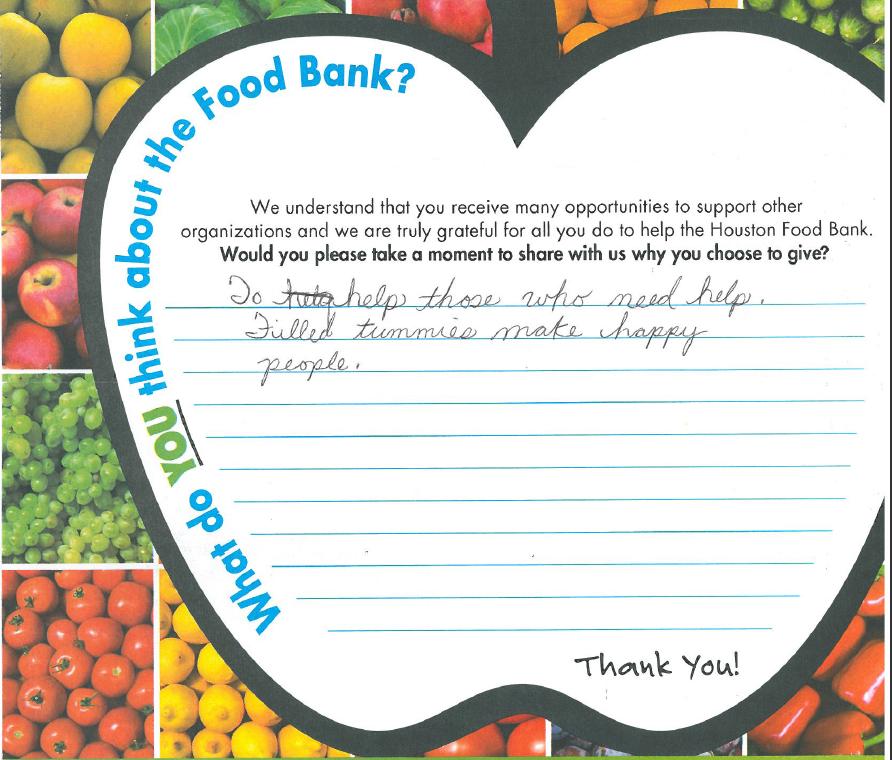 What do YOU think about the Food Bank?
We understand that you receive many opportunities to support other
organizations and we are truly grateful for all you do to help the Houston Food Bank.
Would you please take a moment to share with us why you choose to give?
To help those who need help.
Filled tummies make happy
people.
Thank You!